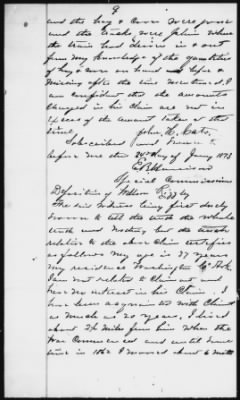 9
and the hay & corn were gone
and the tracks were plain where
the train had driven in & out
from my knowledge of the quantities
of hay & corn on hand before &
missing after the time mentioned, I
am confident that the amounts
charged in his claim are not in
excess of the amount taken at the
time. John H. Cato.
Subscribed and sworn to
before me this day of 1873
Special Commissioner
Deposition of William
The said witness being first duly
sworn to tell the truth the whole
truth and nothing but the truth
relative to the above claim testifies
as follows My age is 37 years
my residence Washington Co Ark.
I am not related to Claimant and
have no interest in his Claim. I
have been acquainted with Claimt
as much as 20 years, I lived
about 2½ miles from him when the
War Commenced and until some
time in 1862 I moved about 6 miles